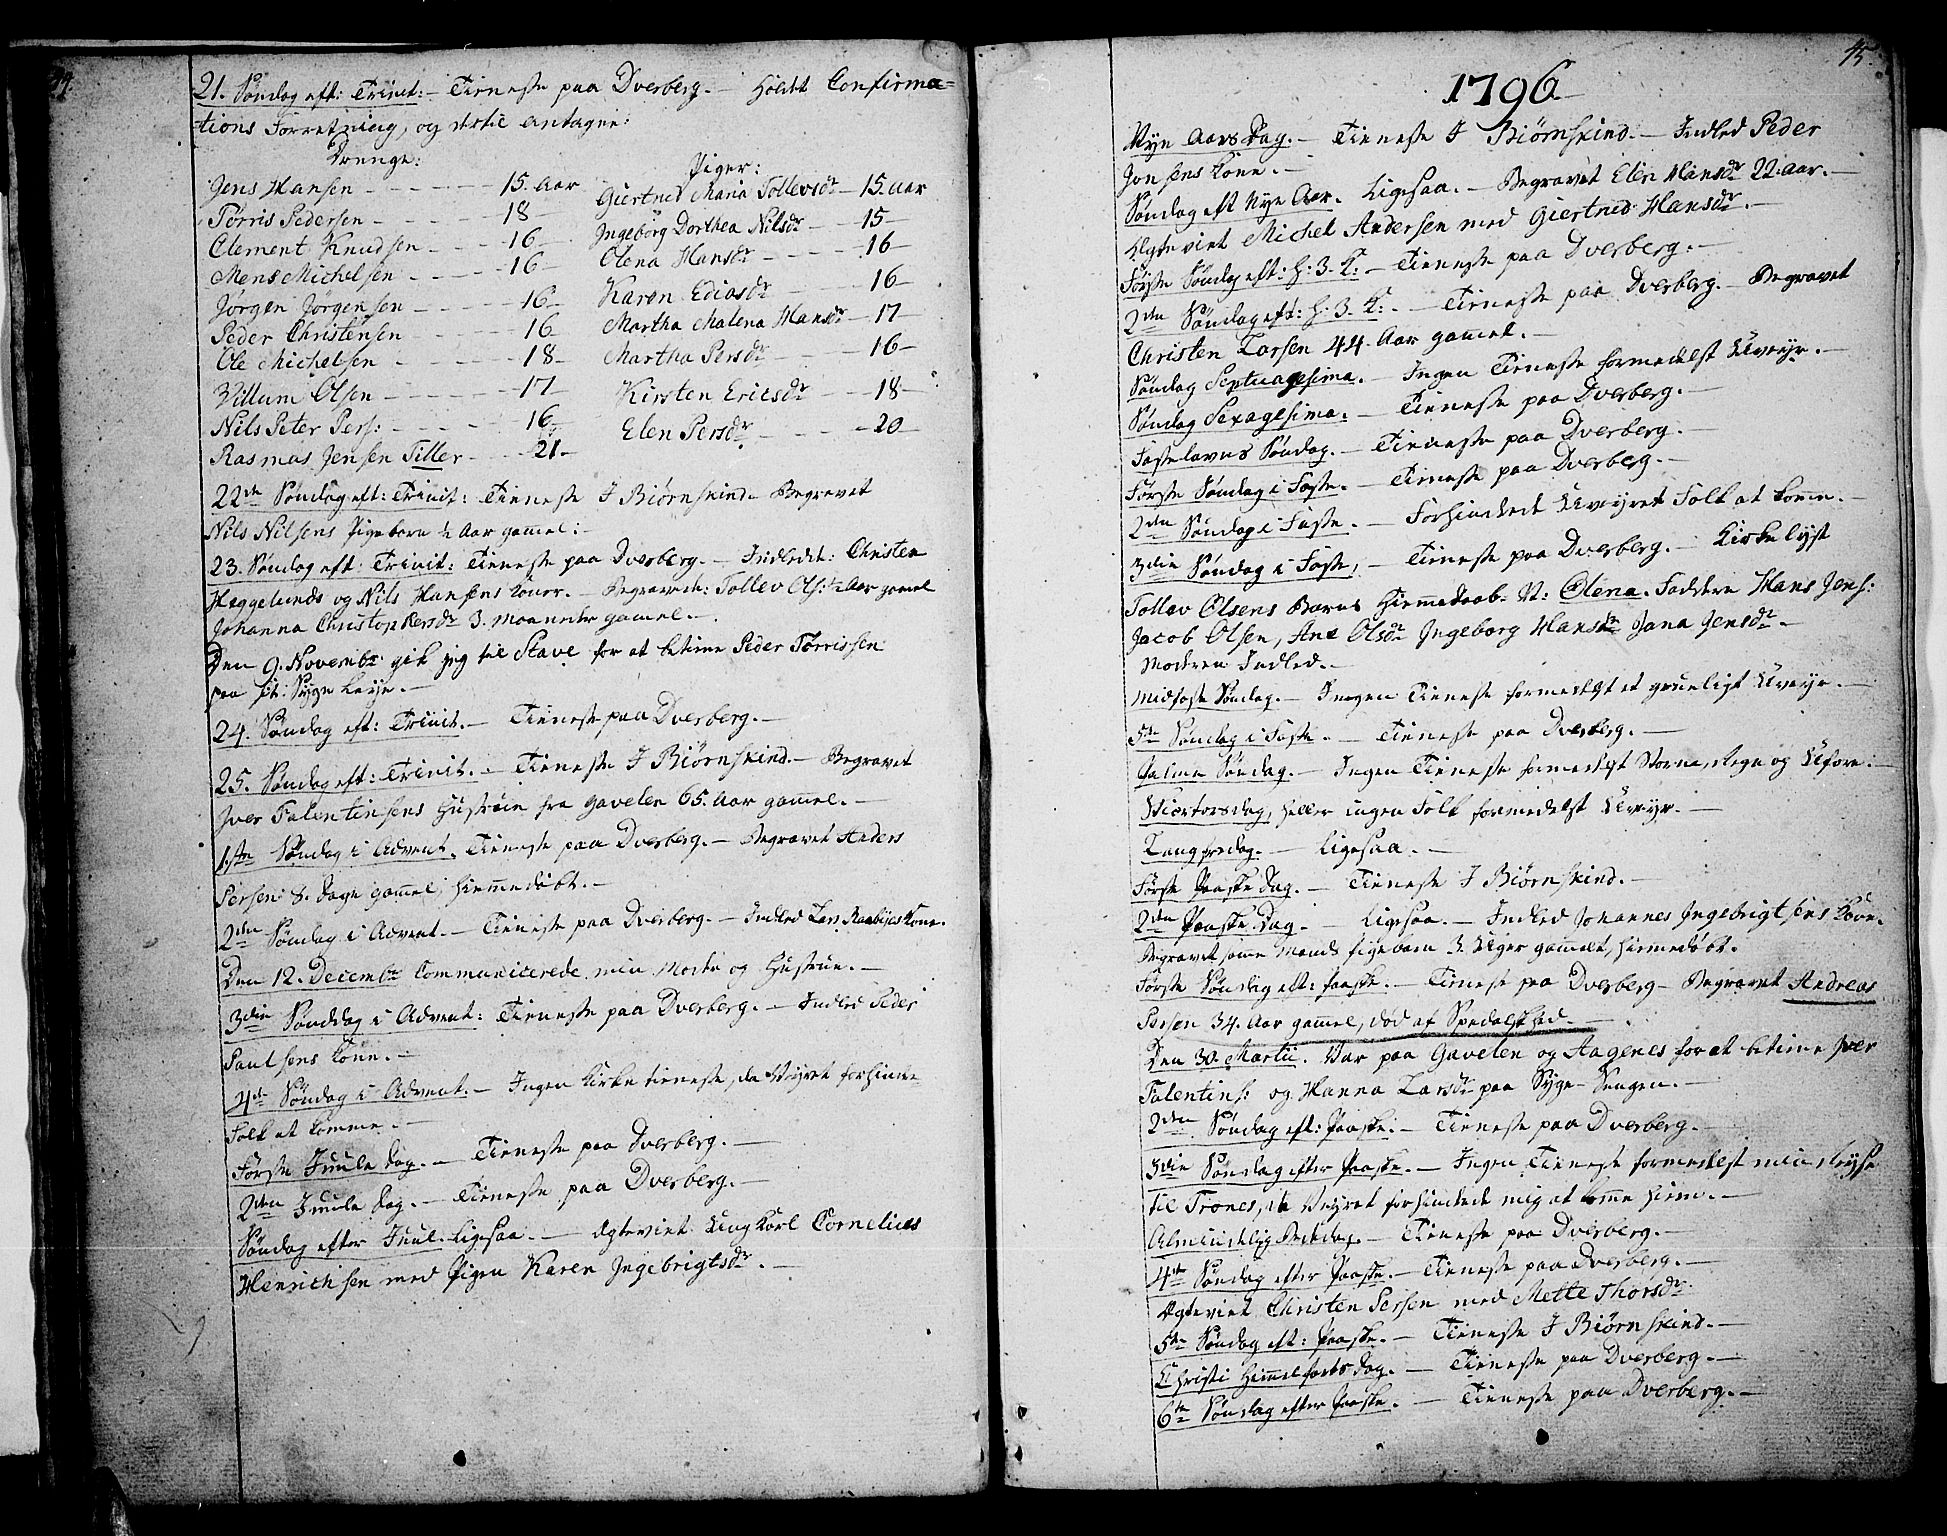 44.
21. Søndag eft: Trinit: – Tieneste paa Dverberg. – Holdt Confirma=
tions Forretning, og dertil antagne:
Drenge:
Piger:
Jens Hansen – 15. Aar
Giertrud Maria Tollevsdr – 15. Aar
Tørris Pedersen – 18 –
Ingebörg Dorthea Nilsdr – 15 –
Clement Knudsen – 16 –
Olena Hansdr – 16 –
Mens Michelsen – 16 –
Karen Ediasdr – 16 –
Jørgen Jørgensen – 16 –
Martha Malena Hansdr – 17 –
Peder Christensen – 16 –
Martha Persdr – 16 –
Ole Michelsen – 18 –
Kirsten Ericsdr – 18 –
Villum Olsen – 17 –
Elen Persdr – 20 –
Nils Peter Pers: – 16 –
Rasmas Jensen Tiller – 21 –
22de Søndag eft: Trinit: Tieneste I Biørnskind – Begravet
Nils Nilsens Pigebarn ½ Aar gamel. –
23. Søndag eft: Trinit: Tieneste paa Dverberg. – Indledet: Christen
Heggelunds og Nils Hansens Koner. – Begravede: Tollev Ols: ½ Aar gamel
Johanna Christophersdr 3. maaneder gamel. –
Den 9. Novembr gik jeg til Stave for at betiene Peder Tørrissen
paa sit Syge Leye. –
24. Søndag eft: Trinit. – Tieneste paa Dverberg. –
25. Søndag eft: Trinit. – Tieneste I Biørnskind. – Begravet
Iver Falentinsens Hustrue fra Gavelen 65. Aar gammel. –
1ste Søndag i Advent. Tieneste paa Dverberg. – Begravet Anders
Persen 8. dage gamel, hiemmedøbt. –
2den Søndag i Advent. – Tieneste paa Dverberg. – Indled Lars Kone.
Den 12. Decembr Communicerede min Moder og Hustrue. –
3die Sønddag i Advent: Tieneste paa Dverberg. – Indled Peder
Paulsens Kone. –
4de Søndag i Advent. – Ingen Kirketieneste, da Veyret forhindrede
Folk at komme. –
Første Juule dag. – Tieneste paa Dverberg. –
2den Juule dag. – Tieneste paa Dverberg. –
Søndag efter Juul. Ligesaa. – Ægteviet Ung Karl Cornelius
Henrichsen med Pigen Karen Ingebrigtsdr. –
45.
1796.
Nye Aars Dag. – Tieneste I Biørnskind. – Indled Peder
Jonsens Kone. –
Søndag eft Nye Aar. Ligesaa. – Begravet Elen Hansdr 22. Aar. –
Ægteviet Michel Andersen med Giertrud Hansdr. –
Første Søndag eft: H: 3. K: – Tieneste paa Dverberg. –
2den Søndag eft: H: 3. K: – Tieneste paa Dverberg. – Begravet
Christen Larsen 44. Aar gamel. –
Søndag Septuagesima. – Ingen Tieneste formedelst Uveyr. –
Søndag Sexagesima. – Tieneste paa Dverberg. –
Fastelavns Søndag. – Tieneste paa Dverberg. –
Første Søndag i Faste. – Tieneste paa Dverberg. –
2den Søndag i Faste. – Forhindrede Uveyret Folk at kome. –
3die Søndag i Faste, – Tieneste paa Dverberg. – Kirkelyst
Tollev Olsens Barns Hiemmedaab. N: Olena. Faddere Hans Jens:
Jacob Olsen, Ane Olsdr Ingeborg Hansdr Jana Jensdr –
Moderen Indled. –
Midfaste Søndag. – Ingen Tieneste formedelst et grueligt Uveyr. –
5te Søndag i Faste. – Tieneste paa Dverberg. –
Palme Søndag. – Ingen Tieneste formedelst og Uføre. –
Skiertorsdag, heller ingen Folk formedelst Uveyr. –
Langfredag. – Ligesaa. –
Første Paaske Dag. – Tieneste I Biørnskind. –
2den Paaske Dag – Ligesaa. – Indled Johannes Ingebrigtsens Kone.
Begravet samme Mands Pigebarn 3. Uger gammelt, hiemmedøbt.
Første Søndag eft: Paaske. – Tieneste paa Dverberg – Begravet Andreas
Persen 34. Aar gammel, død af Spedalskhed. –
Den 30. Martii. Var paa Gavelen og Aagenes for at betiene Iver
Falentins: og Hanna Larsdr paa Syge Sengen. –
2den Søndag eft: Paaske. – Tieneste paa Dverberg. –
3die Søndag efter Paaske. – Ingen Tieneste formedelst min Reyse
til Trones, da Veyret forhindrede mig at komme hiem. –
Almindelig Bededag. – Tieneste paa Dverberg. –
4de Søndag efter Paaske. – Tieneste paa Dverberg. –
Ægteviet Christen Persen med Mette Thorsdr
5te Søndag eft: Paaske. – Tieneste I Biørnskind. –
Christi Himmelfarts Dag. – Tieneste paa Dverberg. –
6te Søndag efter Paaske. – Tieneste paa Dverberg. –